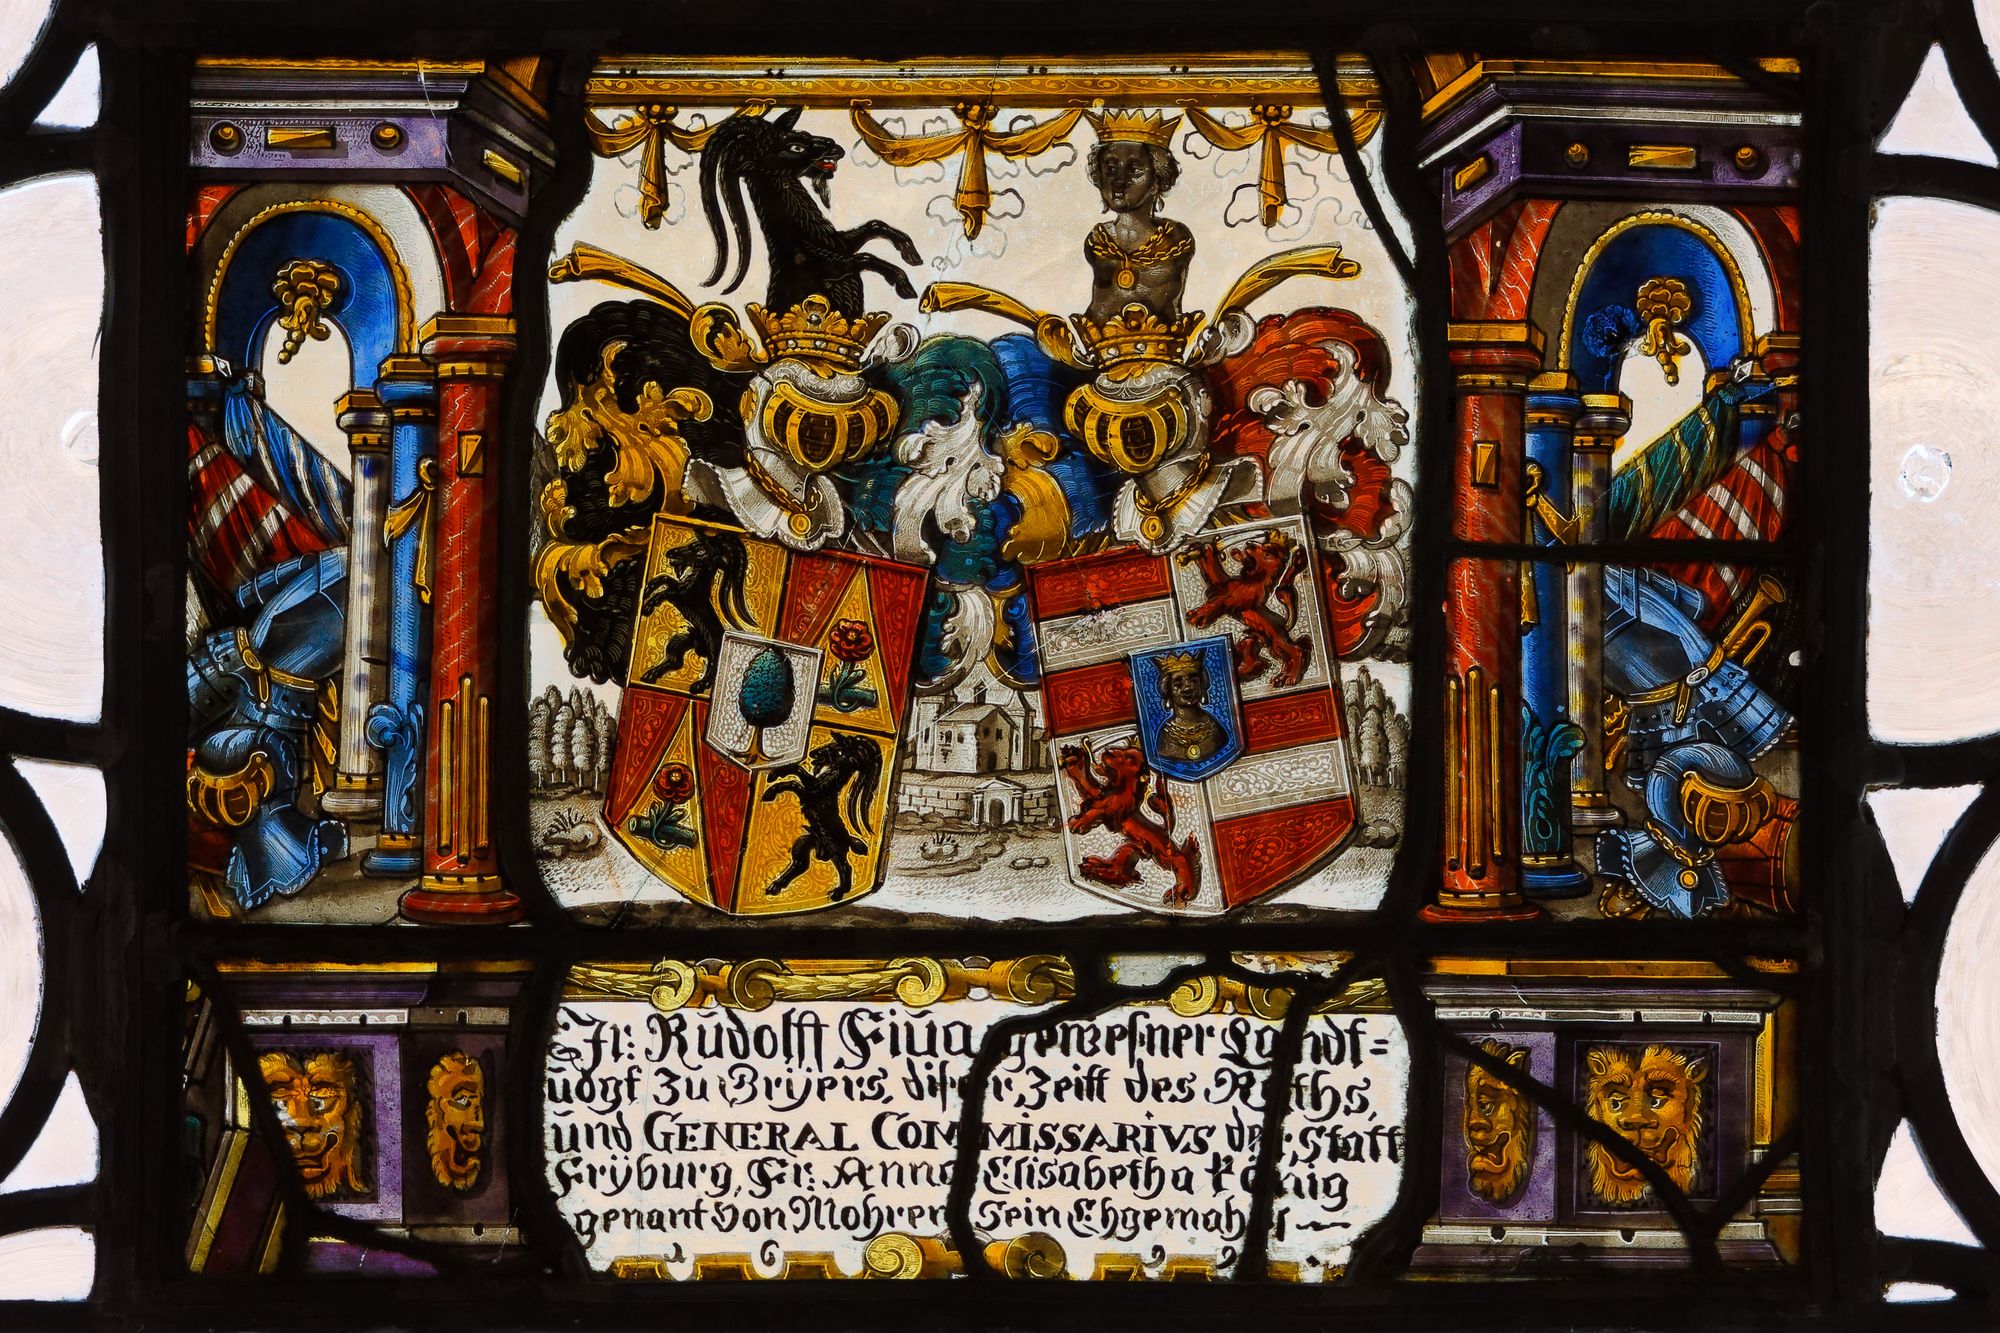 Jr: Rudolff Fiva gewesner Landt=
vogt Zu Brÿers, diser Zeitt des Raths,
und GENERAL COMMISSARIVS der Statt
Frÿburg, Fr: Anna Elisabetha König
genant von Mohren Sein Ehgemahel
1 6 9 9